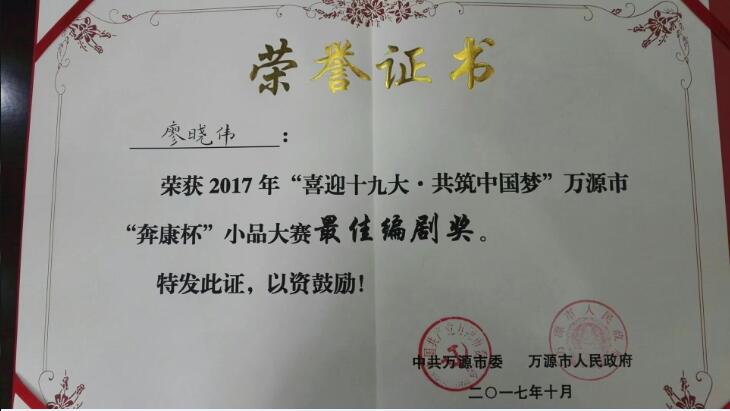 荣誉证书
廖晓伟：
荣获2017年“喜迎十九大·共筑中国梦”万源市
“奔康杯”小品大赛最佳编剧奖。
特发此证，以资鼓励！
中共万源市委 万源市人民政府
二○一七年十月